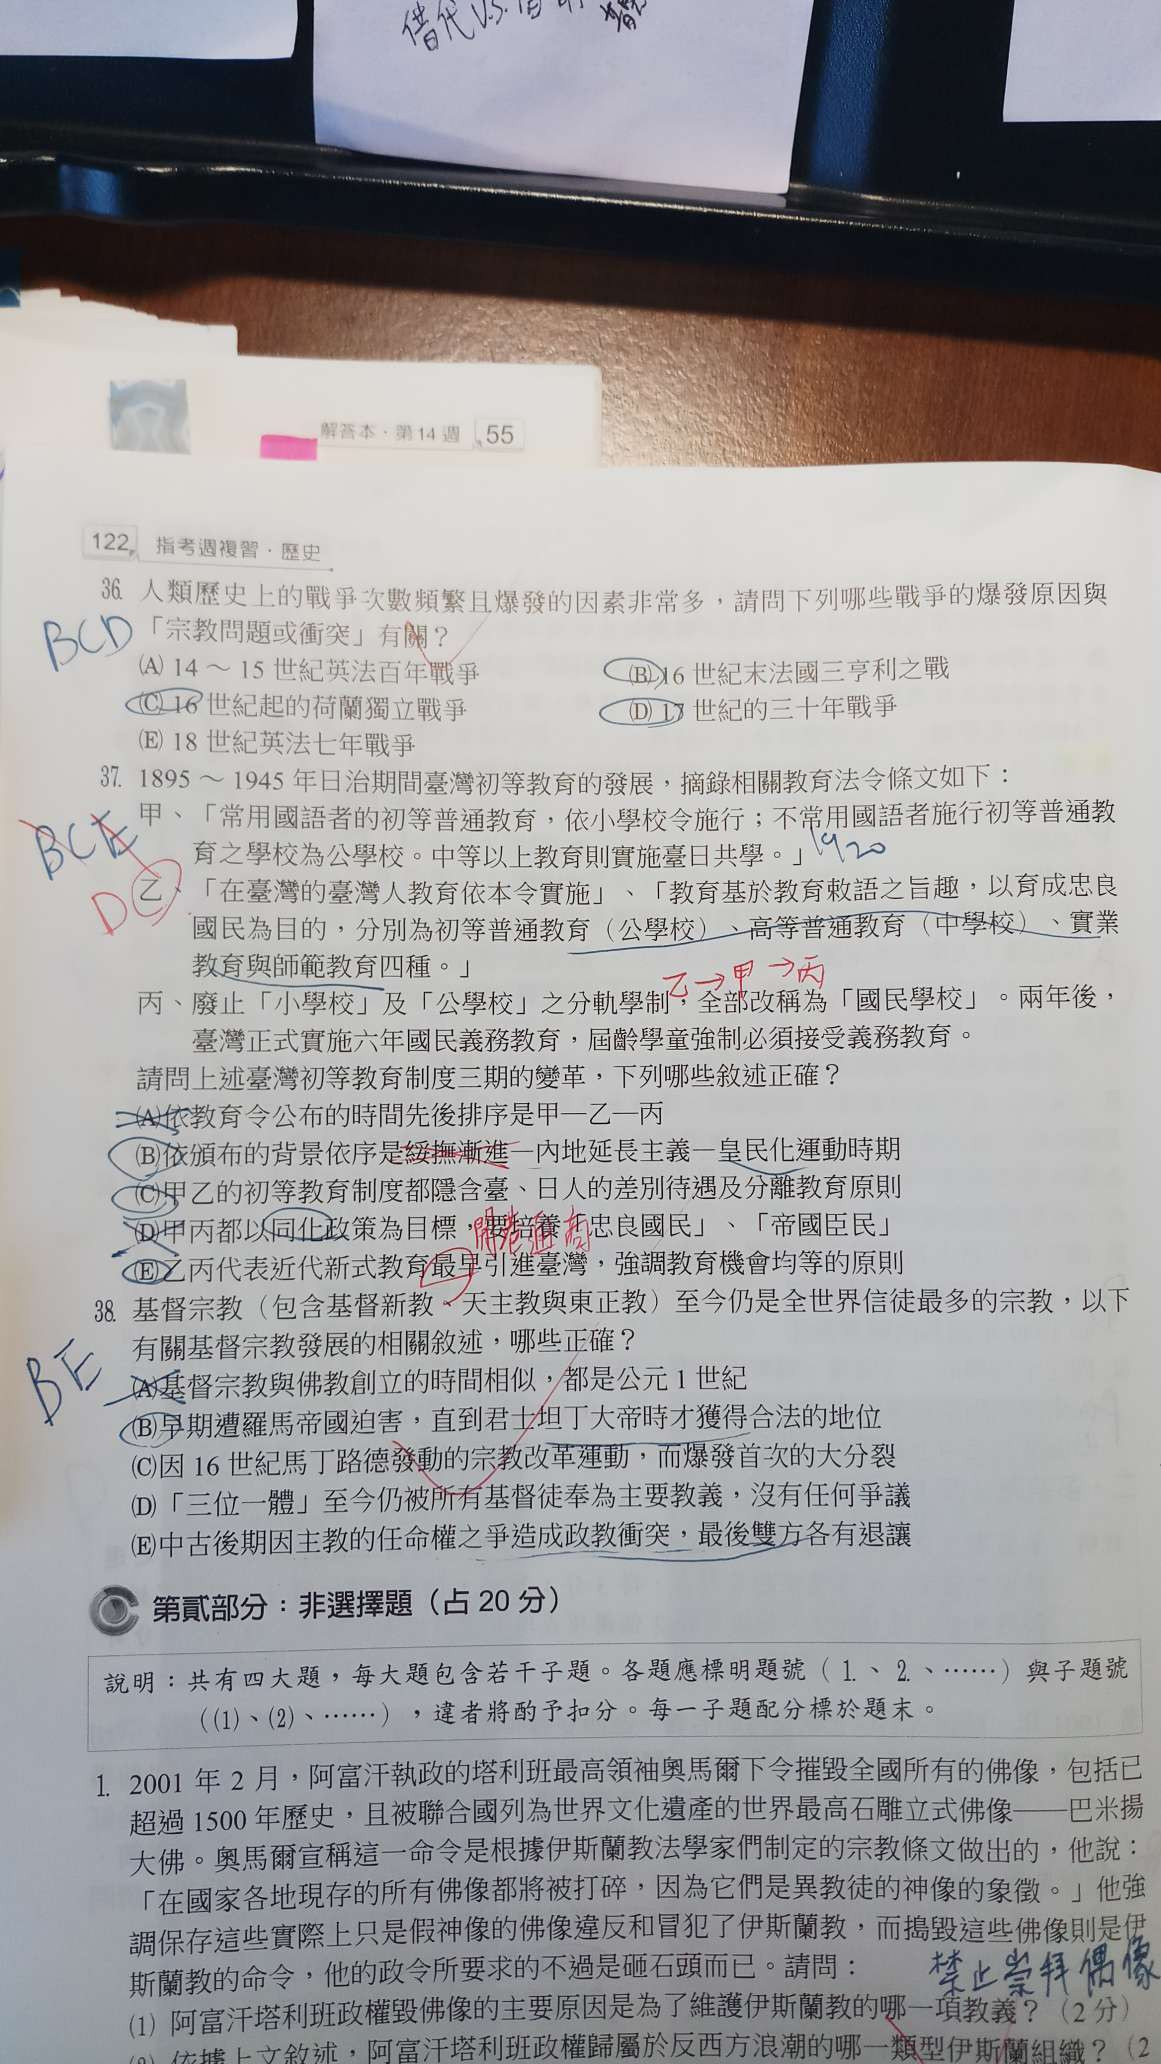 借代V.S.
解答本．第14週 55
122 指考週複習．歷史
36. 人類歷史上的戰爭次數頻繁且爆發的因素非常多，請問下列哪些戰爭的爆發原因與
BCD
「宗教問題或衝突」有關？
(A) 14～15世紀英法百年戰爭 (B) 16世紀末法國三亨利之戰
(C) 16世紀起的荷蘭獨立戰爭 (D) 17世紀的三十年戰爭
(E) 18世紀英法七年戰爭
37. 1895～1945年日治期間臺灣初等教育的發展，摘錄相關教育法令條文如下：
BCE
甲、「常用國語者的初等普通教育，依小學校令施行；不常用國語者施行初等普通教
育之學校為公學校。中等以上教育則實施臺日共學。」1920
DC
乙、「在臺灣的臺灣人教育依本令實施」、「教育基於教育敕語之旨趣，以育成忠良
國民為目的，分別為初等普通教育（公學校）、高等普通教育（中學校）、實業
教育與師範教育四種。」
乙→甲→丙
丙、廢止「小學校」及「公學校」之分軌學制，全部改稱為「國民學校」。兩年後，
臺灣正式實施六年國民義務教育，屆齡學童強制必須接受義務教育。
請問上述臺灣初等教育制度三期的變革，下列哪些敘述正確？
(A)依教育令公布的時間先後排序是甲—乙—丙
(B)依頒布的背景依序是綏撫漸進—內地延長主義—皇民化運動時期
(C)甲乙的初等教育制度都隱含臺、日人的差別待遇及分離教育原則
(D)甲丙都以同化政策為目標，要培養「忠良國民」、「帝國臣民」
開港通商
(E)乙丙代表近代新式教育最早引進臺灣，強調教育機會均等的原則
38. 基督宗教（包含基督新教、天主教與東正教）至今仍是全世界信徒最多的宗教，以下
BE
有關基督宗教發展的相關敘述，哪些正確？
(A)基督宗教與佛教創立的時間相似，都是公元1世紀
(B)早期遭羅馬帝國迫害，直到君士坦丁大帝時才獲得合法的地位
(C)因16世紀馬丁路德發動的宗教改革運動，而爆發首次的大分裂
(D)「三位一體」至今仍被所有基督徒奉為主要教義，沒有任何爭議
(E)中古後期因主教的任命權之爭造成政教衝突，最後雙方各有退讓
第貳部分：非選擇題（占20分）
說明：共有四大題，每大題包含若干子題。各題應標明題號（1.、2.、……）與子題號
（(1)、(2)、……），違者將酌予扣分。每一子題配分標於題末。
1. 2001年2月，阿富汗執政的塔利班最高領袖奧馬爾下令摧毀全國所有的佛像，包括已
超過1500年歷史，且被聯合國列為世界文化遺產的世界最高石雕立式佛像——巴米揚
大佛。奧馬爾宣稱這一命令是根據伊斯蘭教法學家們制定的宗教條文做出的，他說：
「在國家各地現存的所有佛像都將被打碎，因為它們是異教徒的神像的象徵。」他強
調保存這些實際上只是假神像的佛像違反和冒犯了伊斯蘭教，而搗毀這些佛像則是伊
斯蘭教的命令，他的政令所要求的不過是砸石頭而已。請問：
禁止崇拜偶像
(1) 阿富汗塔利班政權毀佛像的主要原因是為了維護伊斯蘭教的哪一項教義？（2分）
(2) 依據上文敘述，阿富汗塔利班政權歸屬於反西方浪潮的哪一類型伊斯蘭組織？（2